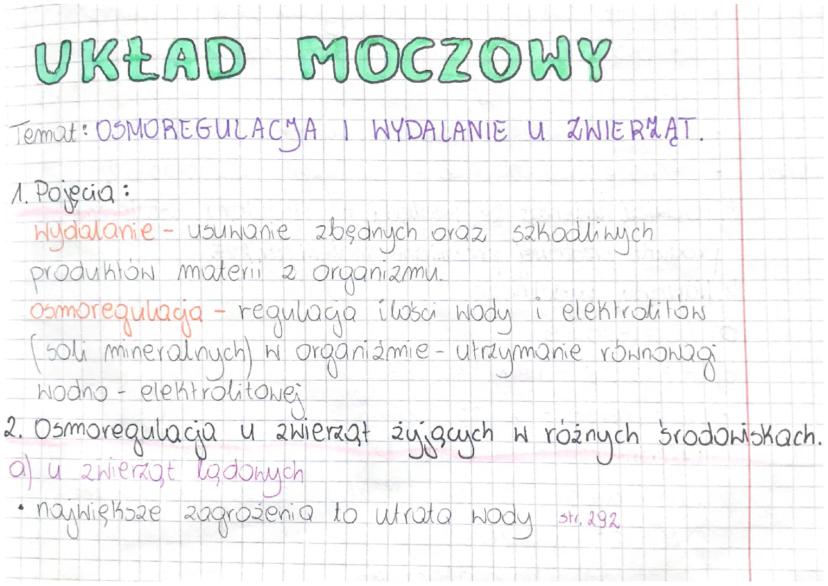 UKŁAD MOCZOWY
Temat: OSMOREGULACJA I WYDALANIE U ZWIERZĄT.
1. Pojęcia:
wydalanie - usuwanie zbędnych oraz szkodliwych
produktów materii z organizmu.
osmoregulacja - regulacja ilości wody i elektrolitów
(soli mineralnych) w organizmie - utrzymanie równowagi
wodno - elektrolitowej
2. Osmoregulacja u zwierząt żyjących w różnych środowiskach.
a) u zwierząt lądowych
• największe zagrożenia to utrata wody str. 292